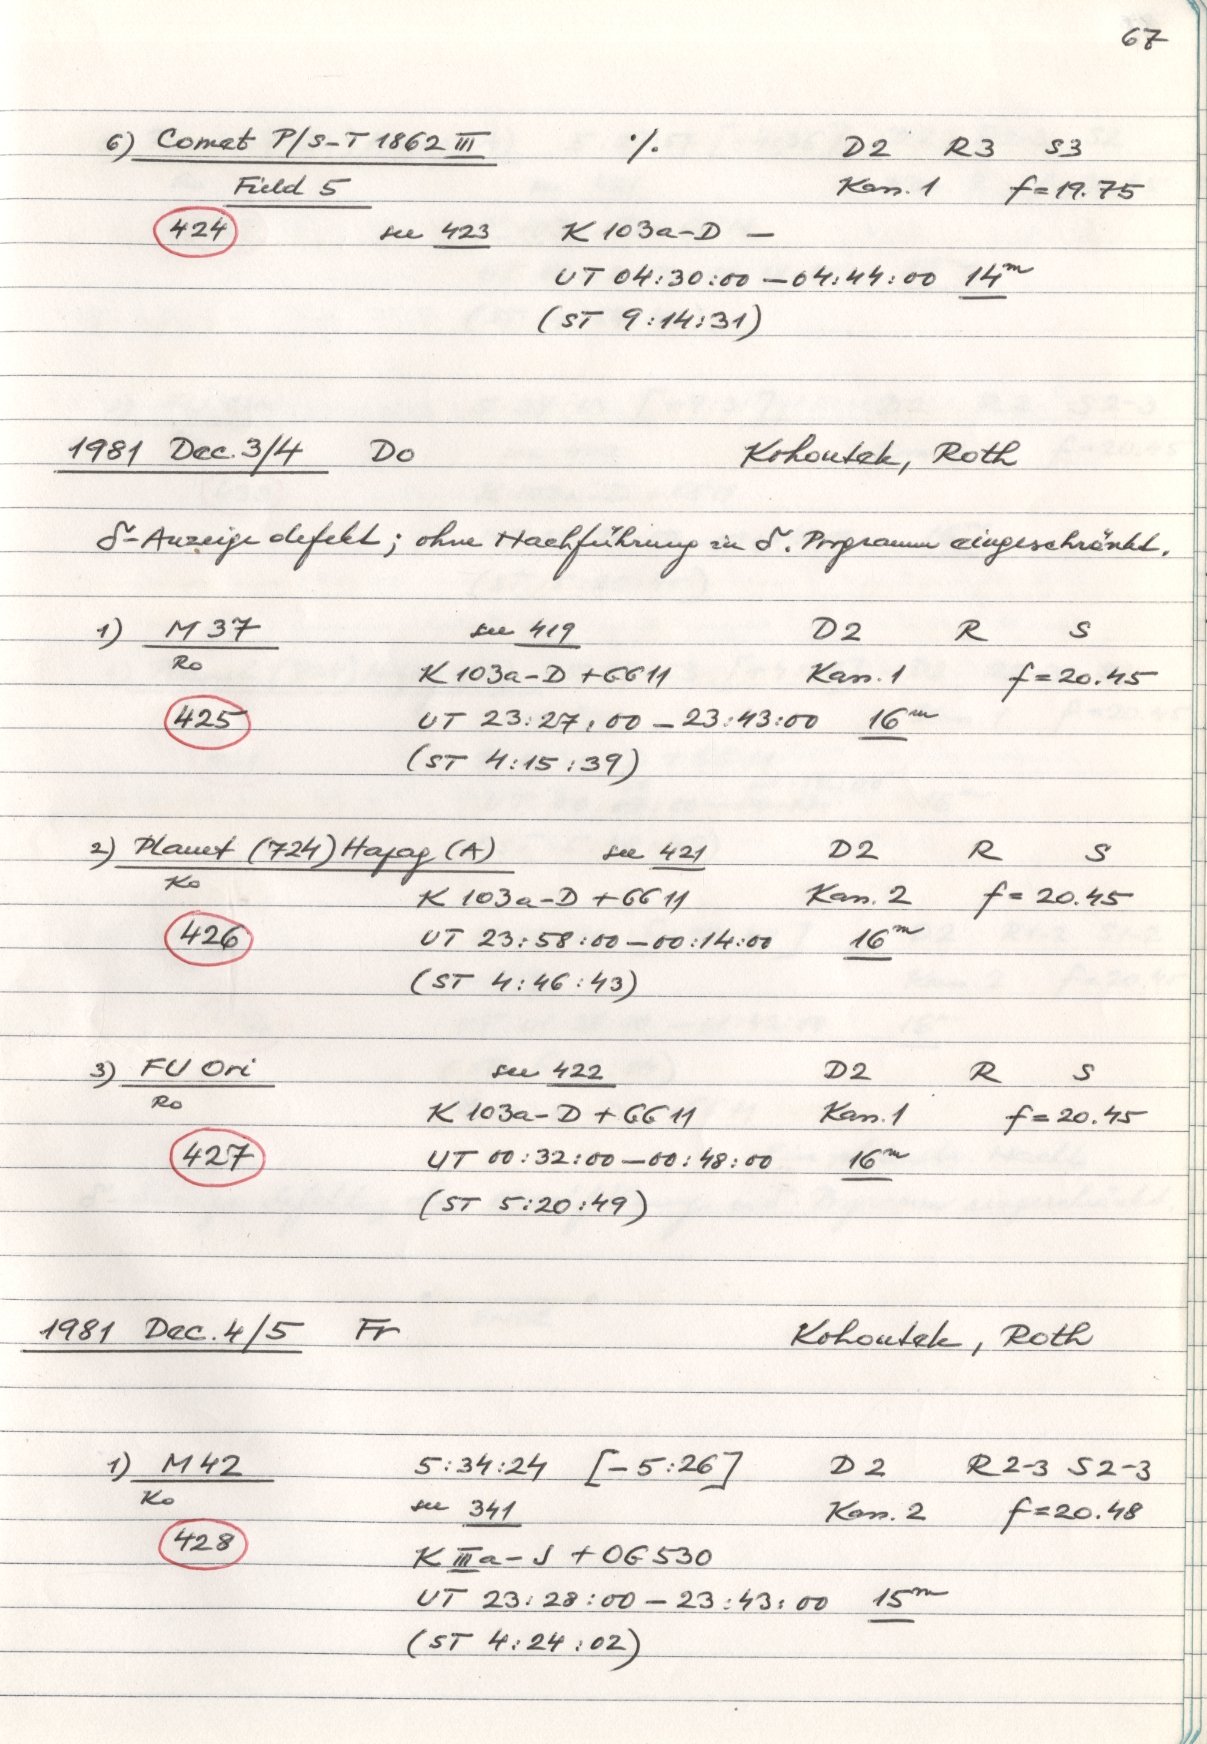 67
6) Comet P/S-T 1862 III ·/. D2 R3 S3
Field 5 Kas. 1 f=19.75
424 see 423 K 103a-D —
UT 04:30:00 — 04:44:00 14m
(ST 9:14:31)
1981 Dec. 3/4 Do Kohoutek, Roth
δ-Anzeige defekt; ohne Nachführung in δ. Programm eingeschränkt.
1) M 37 see 419 D2 R S
Ro K 103a-D + GG11 Kas. 1 f=20.45
425 UT 23:27:00 — 23:43:00 16m
(ST 4:15:39)
2) Planet (724) Hapag (A) see 421 D2 R S
Ko K 103a-D + GG11 Kas. 2 f=20.45
426 UT 23:58:00 — 00:14:00 16m
(ST 4:46:43)
3) FU Ori see 422 D2 R S
Ro K 103a-D + GG11 Kas. 1 f=20.45
427 UT 00:32:00 — 00:48:00 16m
(ST 5:20:49)
1981 Dec. 4/5 Fr Kohoutek, Roth
1) M 42 5:34:24 [-5:26] D2 R2-3 S2-3
Ko see 341 Kas. 2 f=20.48
428 K IIIa-J + OG530
UT 23:28:00 — 23:43:00 15m
(ST 4:24:02)